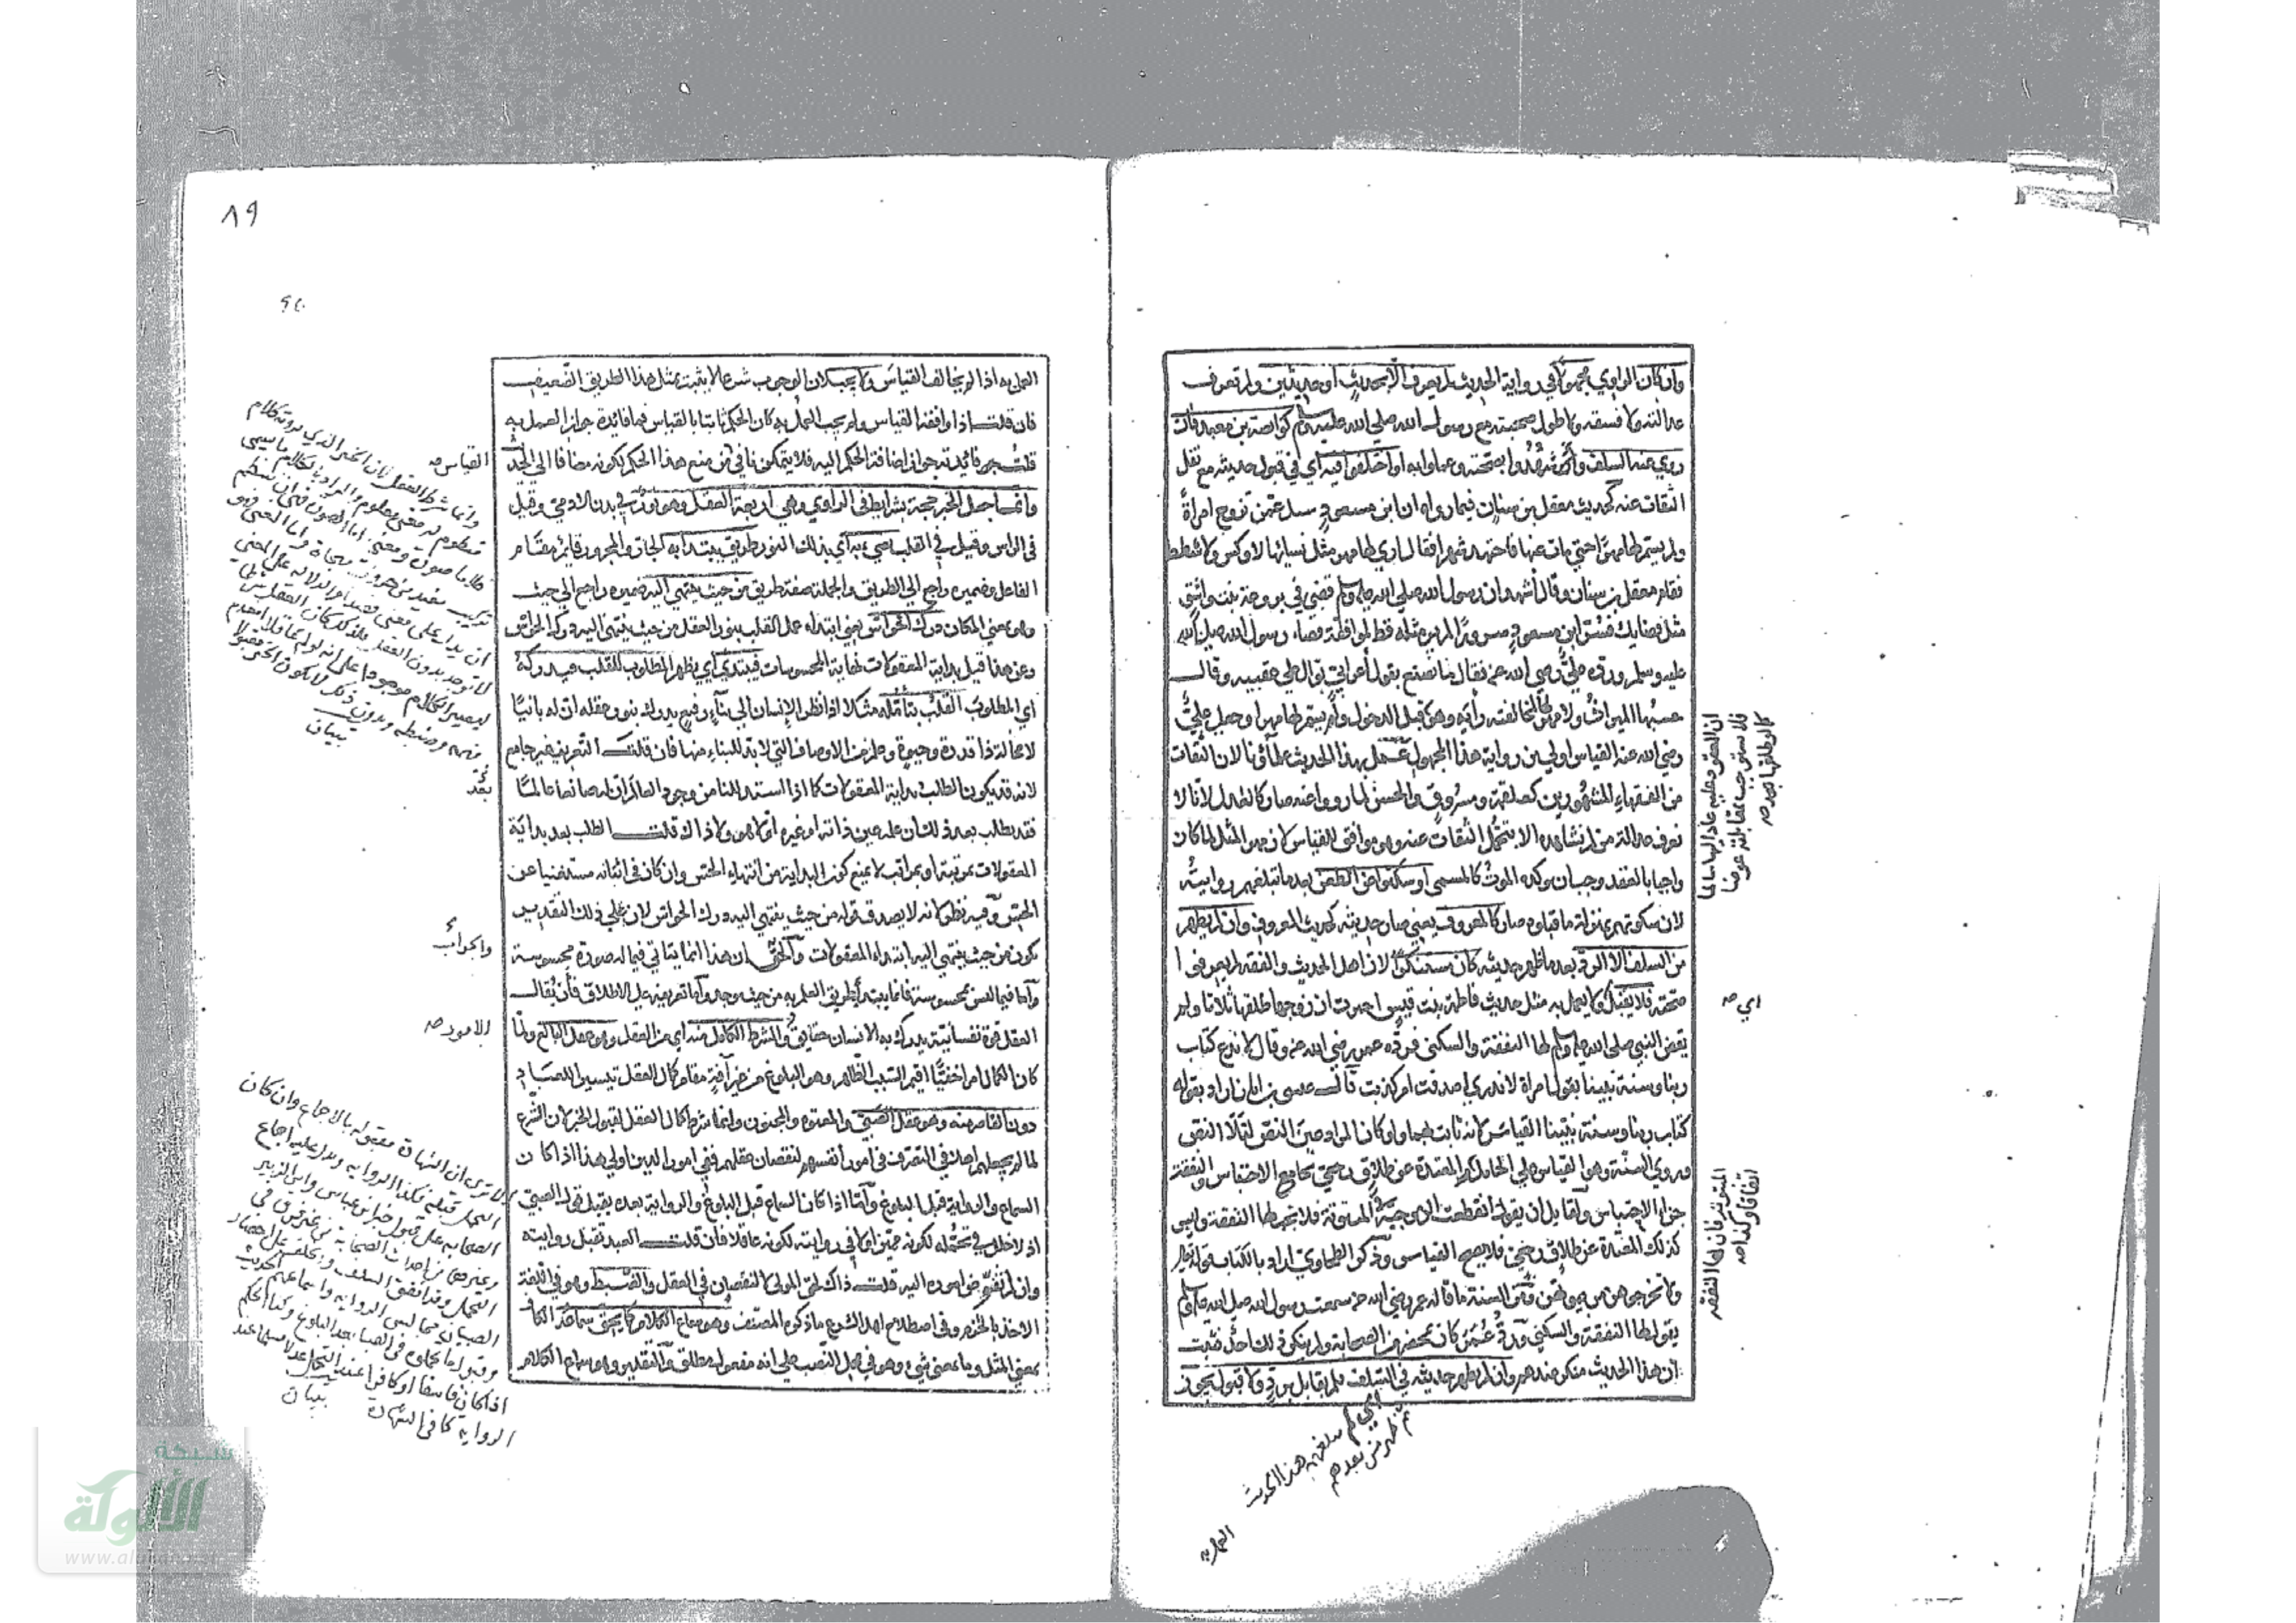 وان كان الراوي مجهولا في رواية الحديث لم يعرف الا بحديث او حديثين ولم تعرف
عدالته ولا فسقه ولا طول صحبته مع رسول الله صلى الله عليه وسلم كوابصة بن معبد فان
روي عنه السلف وشهدوا بصحته وعملوا به او اختلفوا فيه اي في قبول حديثه مع نقل
الثقات عنه كحديث معقل بن سنان فيما رواه ان ابن مسعود سئل عمن تزوج امرأة
ولم يسم لها مهرا حتى مات عنها فاجتهد شهرا فقال اري لها مهر مثل نسائها لا وكس ولا شطط
فقام معقل بن سنان وقال أشهد ان رسول الله صلى الله عليه وسلم قضى في بروع بنت واشق
مثل قضايك فسر ابن مسعود سرورا لم ير مثله قط لموافقة قضاء رسول الله صلى الله
عليه وسلم ورده علي رضي الله عنه فقال ما نصنع بقول أعرابي بوال على عقبيه وقال
حسبها الميراث ولا مهر لها لمخالفته رأيه وهو قبل الدخول ولم يسم لها مهرا وجعل علي
رضي الله عنه القياس اولى من رواية هذا المجهول عمل بهذا الحديث علماؤنا لان الثقات
من الفقهاء المشهورين كعلقمة ومسروق والحسن لما رووا عنه صار كالعدل لانا لا
نعرف عدالة من لم نشاهده الا بتحمل الثقات عنه وهو موافق للقياس لان مهر المثل لما كان
واجبا بالعقد وجب ان يوكده الموت كالمسمى او سكتوا عن الطعن بعد ما تبلغهم روايته
لان سكوتهم بمنزلة ما قبلوه صار كالمعروف يعني صار حديثه كحديث المعروف وان لم يظهر
من السلف الا الرد بعد ما ظهر حديثه كان مستنكرا لان اهل الحديث والفقه لم يعرفوا
صحته فلا يقبل ولا يعمل به مثل حديث فاطمة بنت قيس اخبرت ان زوجها طلقها ثلاثا ولم
يقض النبي صلى الله عليه وسلم لها النفقة والسكنى فرده عمر رضي الله عنه وقال لا ندع كتاب
ربنا وسنة نبينا بقول امراة لا ندري اصدقت ام كذبت قال عيسى بن ابان اراد بقوله
كتاب ربنا وسنة نبينا القياس لانه ثابت بهما ولو كان المراد عين النص لتلا النص
وروي السنة وهو القياس على الحامل او المعتدة عن طلاق رجعي بجامع الاحتباس والنفقة
جزاء الاحتباس ولقايل ان يقول انقطعت الزوجية في المبتوتة فلا تجب لها النفقة وليس
كذلك المعتدة عن طلاق رجعي فلا يصح القياس وذكر الطحاوي اراد بالكتاب قوله تعالى
ولا تخرجوهن من بيوتهن ومن السنة ما قاله عمر رضي الله عنه سمعت رسول الله صلى الله عليه وسلم
يقول لها النفقة والسكنى ورده عمر كان بمحضر من الصحابة ولم ينكر ذلك احد فثبت
ان هذا الحديث منكر عندهم وان لم يظهر حديثه في السلف فلم يقابل برد ولا قبول يجوز
ان المعقود عليه عاد اليها سالما
فلا تستوجب بمقابلته عوضا
كما لو طلقها
اي صح
المبتوتة فان لها النفقة
اتفاقا وكذا صح
اي لم يبلغهم هذا الحديث
ثم ظهر من بعدهم
العمل به
٨٩
العمل به اذا لم يخالف القياس ولا يجب لان الوجوب شرعا لا يثبت بمثل هذا الطريق الضعيف
فان قلت اذا وافقه القياس ولم يجب العمل به كان الحكم ثابتا بالقياس فما فائدة جواز العمل به
قلت فائدته جواز اضافة الحكم اليه فلا يتمكن نافي من منع هذا الحكم لكونه مضافا الى الحديث
وانما جعل الخبر حجة بشرايط في الراوي وهي اربعة العقل وهو نور في بدن الادمي وقيل
في الراس وقيل في القلب يضيء به اي بذلك النور طريق يبتدا به الجار والمجرور قائم مقام
الفاعل وضميره راجع الى الطريق والجملة صفة طريق من حيث ينتهي اليه ضميره راجع الى حيث
وهو بمعنى المكان درك الحواس يعني ابتداء عمل القلب بنور العقل من حيث ينتهي اليه درك الحواس
وعن هذا قيل بداية المعقولات نهاية المحسوسات فيبتدي اي يظهر المطلوب للقلب فيدركه
اي المطلوب القلب بتأمله مثلا اذا نظر الانسان الى بناء رفيع يدرك بنور عقله ان له بانيا
لا محالة ذا قدرة وحيوة وعلم من الاوصاف التي لا بد للبناء منها فان قلت التعريف غير جامع
لانه قد يكون الطلب بداية المعقولات كما اذا استدللنا من وجود العالم ان له صانعا عالما
فقد يطلب بعد ذلك ان علمه عين ذاته ام غيره او لا هو ولا ذاك قلت الطلب بعد بداية
المعقولات بمرتبة او بمراتب لا يمنع كون البداية من انتهاء الحس وان كان في اثنائه مستغنيا عن
الحس وفيه نظر لانه لا يصدق قوله من حيث ينتهي اليه درك الحواس لان على ذلك التقدير
يكون من حيث ينتهي اليه ابتداء المعقولات والحق ان هذا انما يتاتي فيما له صورة محسوسة
وأما فيما ليس بمحسوسة فانما يبتدأ طريق العلم به من حيث يوجد واما تعريفه على الاطلاق فأن يقال
العقل قوة نفسانية يدرك به الانسان حقايق والشرط الكامل منه اي من العقل وهو عقل البالغ ولما
كان الكمال امرا خفيا اقيم السبب الظاهر وهو البلوغ من غير آفة مقام كمال العقل تيسيرا للعباد
دون القاصر منه وهو عقل الصبي والمعتوه والمجنون وانما شرط كمال العقل لقبول الخبر لان الشرع
لما لم يجعلهم اهلا في التصرف في امور انفسهم لنقصان عقلهم ففي امور الدين اولى هذا اذا كان
السماع والرواية قبل البلوغ وأما اذا كان السماع قبل البلوغ والرواية بعده يقبل قول الصبي
اذ لا خلل في تحمله لكونه مميزا ولا في روايته لكونه عاقلا فان قلت العبد تقبل روايته
وان لم تفوض اموره اليه قلت ذاك لحق المولى لا لنقصان في العقل والضبط وهو في اللغة
الاخذ بالحزم وفي اصطلاح اهل الشرع ما ذكره المصنف وهو سماع الكلام كما يحق سماعه الكاف
بمعنى المثل وما بمعنى شيء وهو في محل النصب على انه مفعول مطلق والتقدير وهو سماع الكلام
القياس صح
وانما شرط العقل لان الخبر الذي يرويه كلام
منظوم له معنى معلوم
بيان
والجواب
الامور صح
الا ترى ان الشهادة مقبولة بالاجماع وان كان
التحمل قبله فكذا الرواية ويدل عليه اجماع
الصحابة على قبول خبر ابن عباس وابن الزبير
وغيرهما من احداث الصحابة من غير فرق في
التحمل وقد اتفق السلف والخلف على احضار
الصبيان مجالس الرواية واسماعهم الحديث
وقبول ما تحملوه في الصبا بعد البلوغ وكذا الحكم
اذا كان فاسقا او كافرا عند التحمل عدلا مسلما عند
الرواية كما في الشهادة
بيان
شبكة
الألوكة